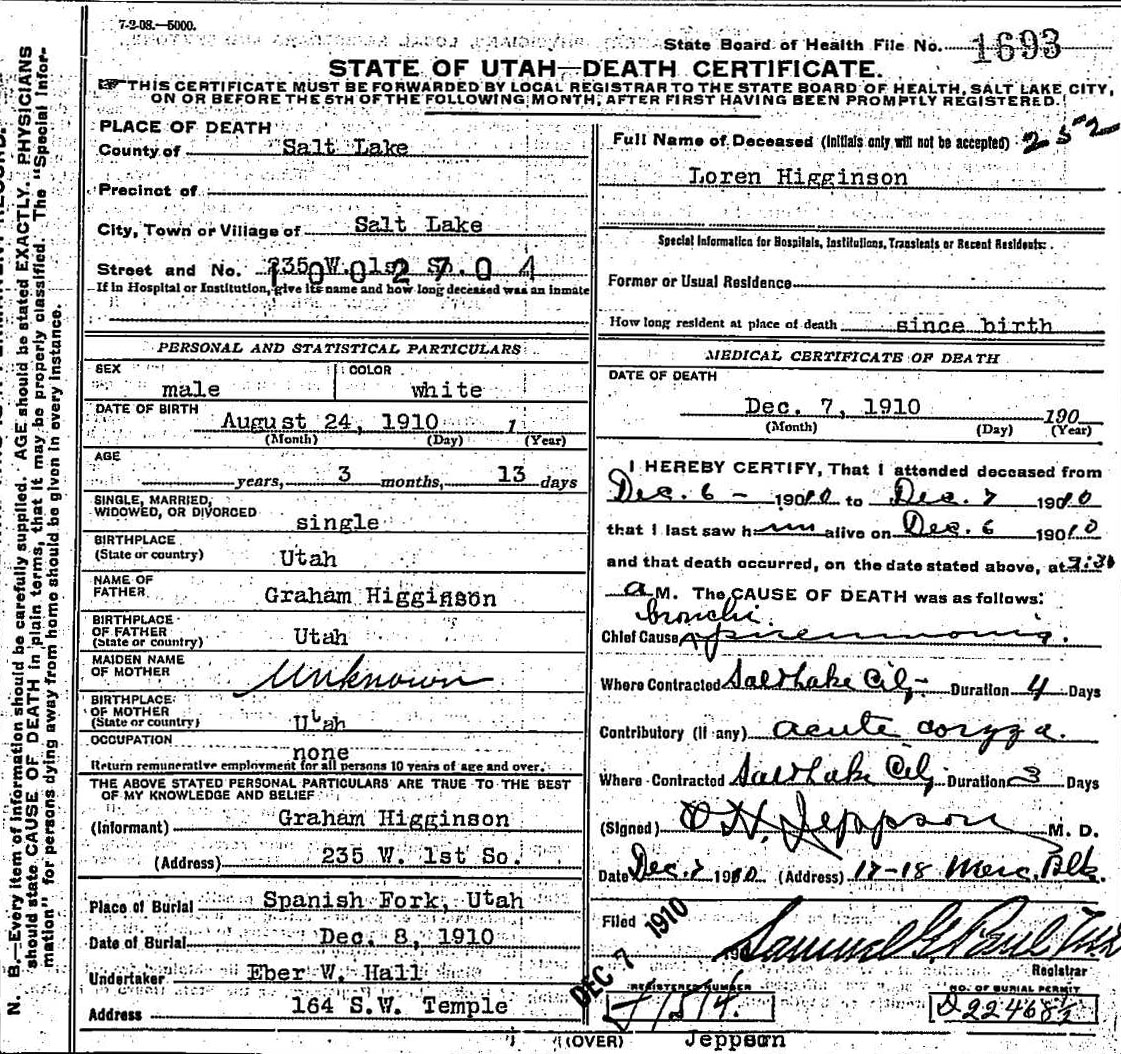 7-2-08.—5000.
State Board of Health File No. 1693
STATE OF UTAH—DEATH CERTIFICATE.
THIS CERTIFICATE MUST BE FORWARDED BY LOCAL REGISTRAR TO THE STATE BOARD OF HEALTH, SALT LAKE CITY,
ON OR BEFORE THE 5TH OF THE FOLLOWING MONTH, AFTER FIRST HAVING BEEN PROMPTLY REGISTERED.
PLACE OF DEATH
County of Salt Lake
Precinct of
City, Town or Village of Salt Lake
Street and No. 235 W. 1st So.
1002704
If in Hospital or Institution, give its name and how long deceased was an inmate
PERSONAL AND STATISTICAL PARTICULARS
SEX male COLOR white
DATE OF BIRTH August 24, 1910 1
(Month) (Day) (Year)
AGE years, 3 months, 13 days
SINGLE, MARRIED,
WIDOWED, OR DIVORCED single
BIRTHPLACE
(State or country) Utah
NAME OF
FATHER Graham Higginson
BIRTHPLACE
OF FATHER
(State or country) Utah
MAIDEN NAME
OF MOTHER Unknown
BIRTHPLACE
OF MOTHER
(State or country) Utah
OCCUPATION none
Return remunerative employment for all persons 10 years of age and over.
THE ABOVE STATED PERSONAL PARTICULARS ARE TRUE TO THE BEST
OF MY KNOWLEDGE AND BELIEF
(Informant) Graham Higginson
(Address) 235 W. 1st So.
Place of Burial Spanish Fork, Utah
Date of Burial Dec. 8, 1910
Undertaker Eber W. Hall
Address 164 S.W. Temple
Full Name of Deceased (Initials only will not be accepted) 252
Loren Higginson
Special Information for Hospitals, Institutions, Transients or Recent Residents:
Former or Usual Residence
How long resident at place of death since birth
MEDICAL CERTIFICATE OF DEATH
DATE OF DEATH
Dec. 7, 1910 190
(Month) (Day) (Year)
I HEREBY CERTIFY, That I attended deceased from
Dec. 6 - 1910 to Dec. 7 1910
that I last saw him alive on Dec. 6 1910
and that death occurred, on the date stated above, at 2:30
a M. The CAUSE OF DEATH was as follows:
bronchi
Chief Cause pneumonia.
Where Contracted Salt Lake City Duration 4 Days
Contributory (if any) acute coryza.
Where Contracted Salt Lake City Duration 3 Days
(Signed) O H. Jeppson M. D.
Date Dec. 7 1910 (Address) 17-18 Merc. Blk.
Filed DEC 7 1910 Samuel G. Paul
Registrar
REGISTERED NUMBER NO. OF BURIAL PERMIT
1514 D22468½
(OVER) Jeppson
N. B.—Every item of information should be carefully supplied. AGE should be stated EXACTLY. PHYSICIANS
should state CAUSE OF DEATH in plain terms, that it may be properly classified. The "Special Infor-
mation" for persons dying away from home should be given in every instance.